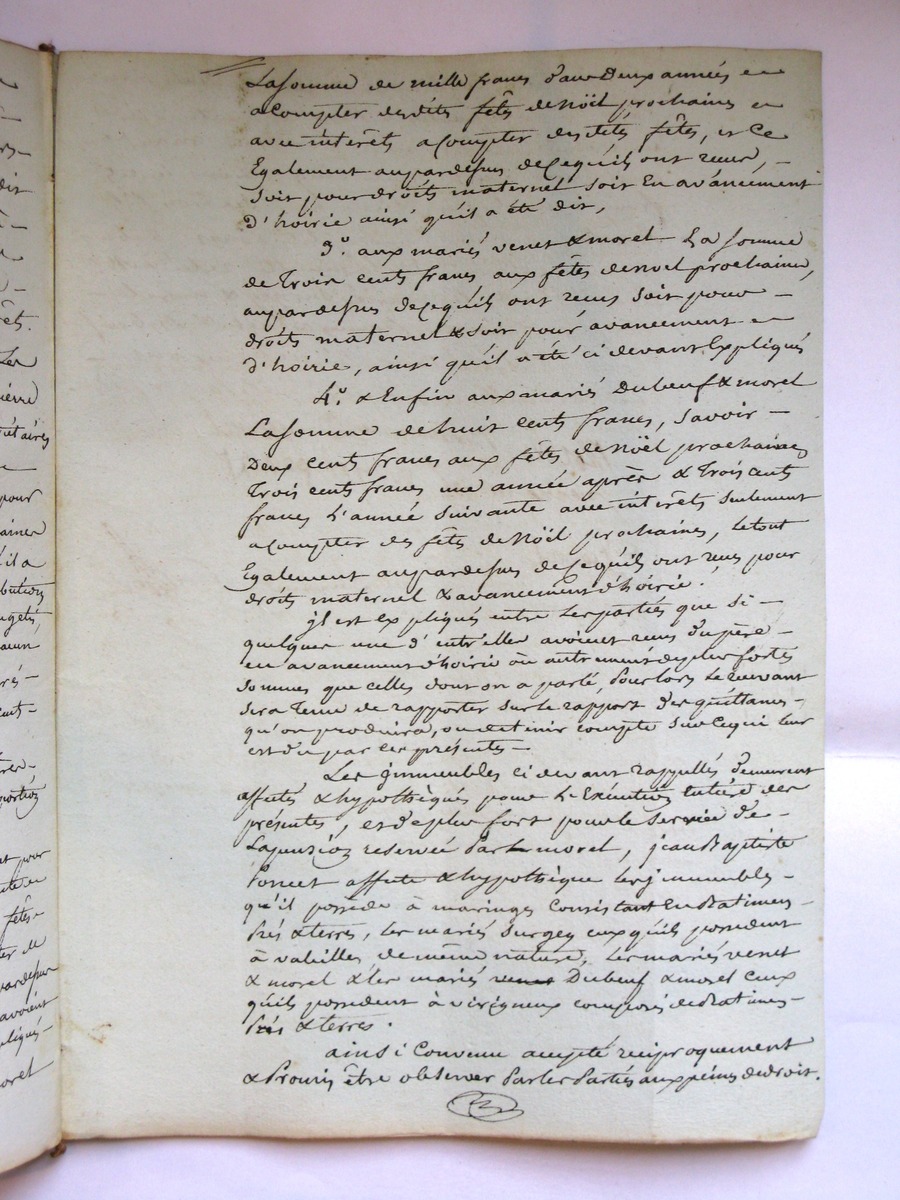 La somme de mille francs dans Deux années
a Compter desdits fêtes de Nöel prochaines
avec intérêts a Compter desdités fêtes, et Ce
Egalement aupardessus de ce qu'ils ont recus,
soit pour droits maternel soit En avancement
D'hoirie ainsi qu'il a été dit,
3°. aux mariés venet & morel La somme
de Trois cents francs aux fêtes de noel prochaines,
aupardessus de ce qu'ils ont recus soit pour
droits maternel & soit pour avancement
d'hoirie, ainsi qu'il a été ci devant Expliqués
4°. & Enfin aux mariés Dubeuf & morel
La somme de huit cents francs, savoir
Deux cents francs aux fêtes de Nöel prochaines
Trois cents francs une année après & Trois cents
francs L'année suivante avec intérêts seulement
a Compter des fêtes de Nöel prochaines, le tout
Egalement aupardessus de ce qu'ils ont recus pour
droits maternel & avancement d'hoirie.
jl est expliqués entre Les parties que si
quelques une d'entr'elles avoient recus du père
en avancement d'hoirie ou autrement de plus fortes
sommes que celles dont on a parlé, Pour lors Le recevant
sera Tenu de rapporter sur le rapport des quittances
qu'on produira, ou de tenir compte sur ce qui leur
est du par ces présentes
Les jmmeubles ci devant rappellés demeurent
affectés & hypothèqués pour L'Exécution des
présentes, et de plus fort pour le service de
La pension reservée Par morel, jean Baptiste
Poncet affecte & hypothèque les jmmeubles
qu'il possède à maringes Consistant En Batimens
Prés & terres, Les mariés surgey ceux qu'ils possedent
à valeilles de même nature, Les mariés venet
& morel & les mariés venet Dubeuf & morel ceux
qu'ils possedent à virigneux composés de Batimens
Prés & terres.
ainsi Convenu accepté réciproquement
& Promis être observer Par les Parties aux peines de droit.